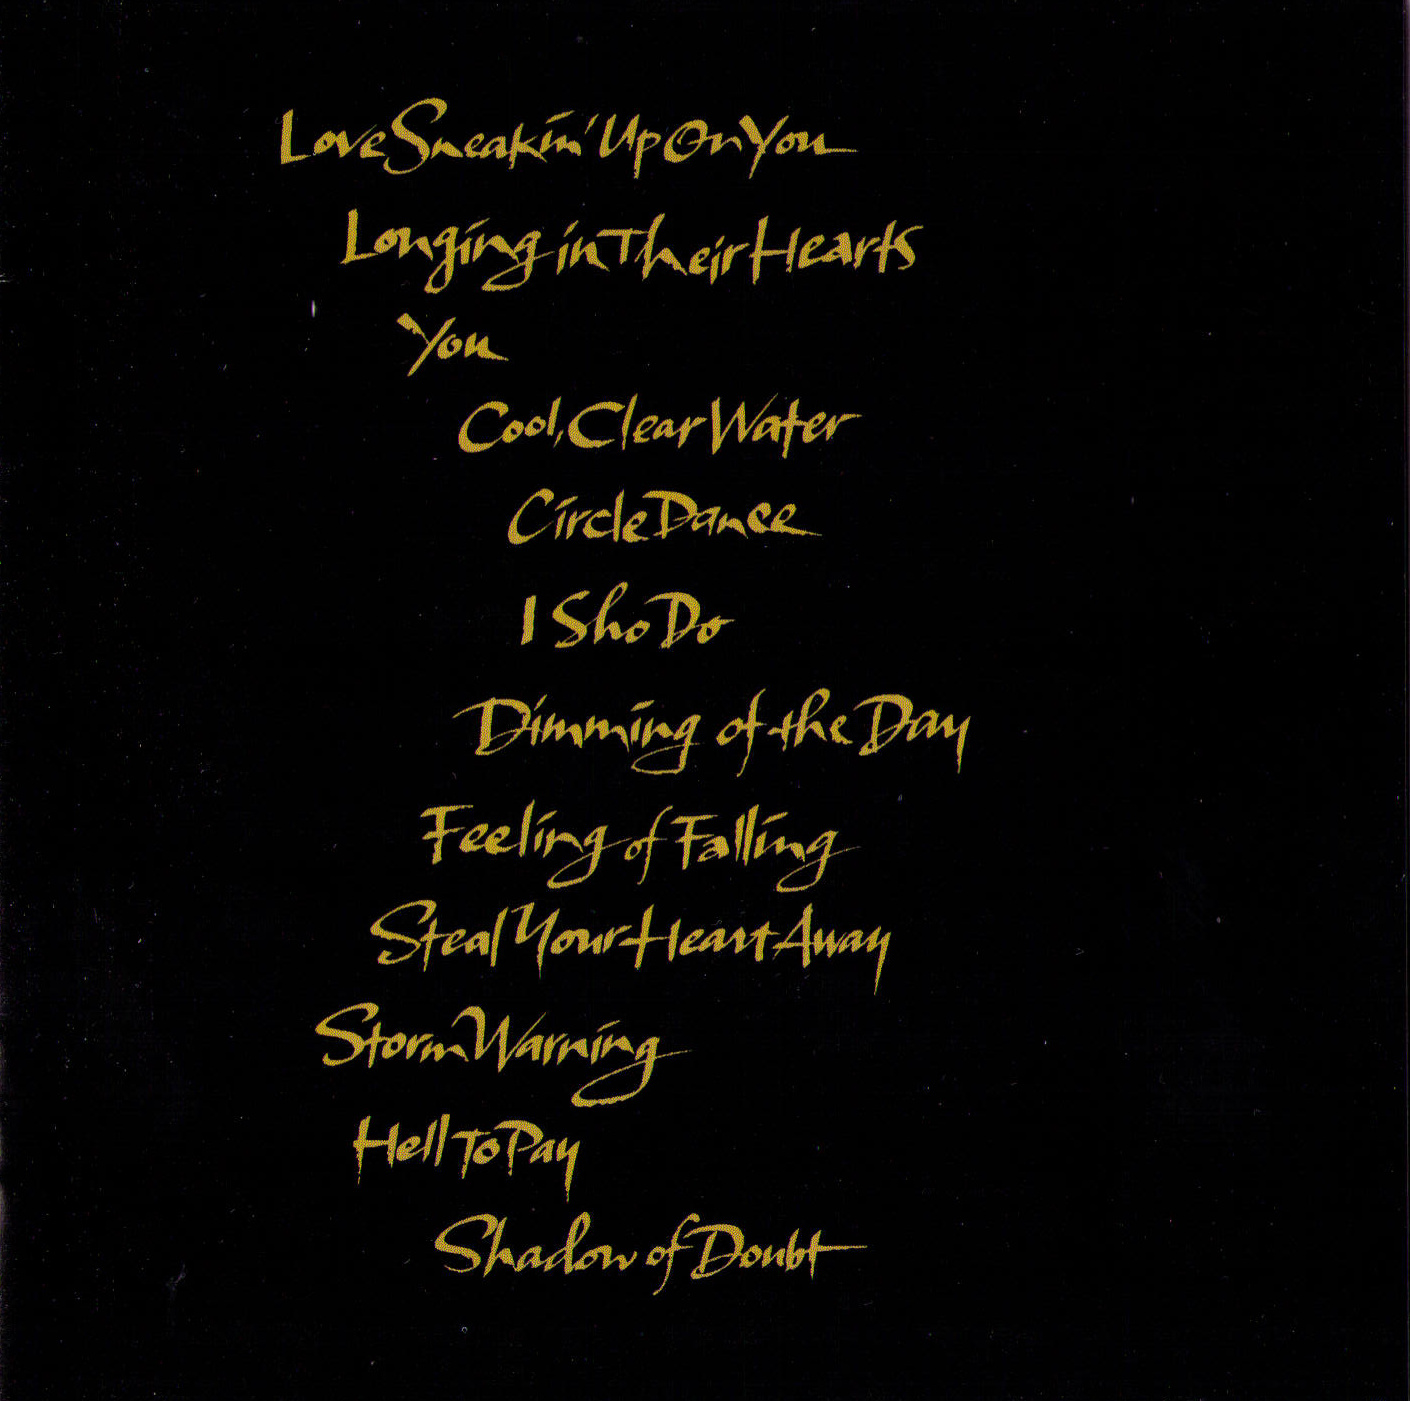 Love Sneakin' Up On You
Longing in Their Hearts
You
Cool, Clear Water
Circle Dance
I Sho Do
Dimming of the Day
Feeling of Falling
Steal Your Heart Away
Storm Warning
Hell To Pay
Shadow of Doubt